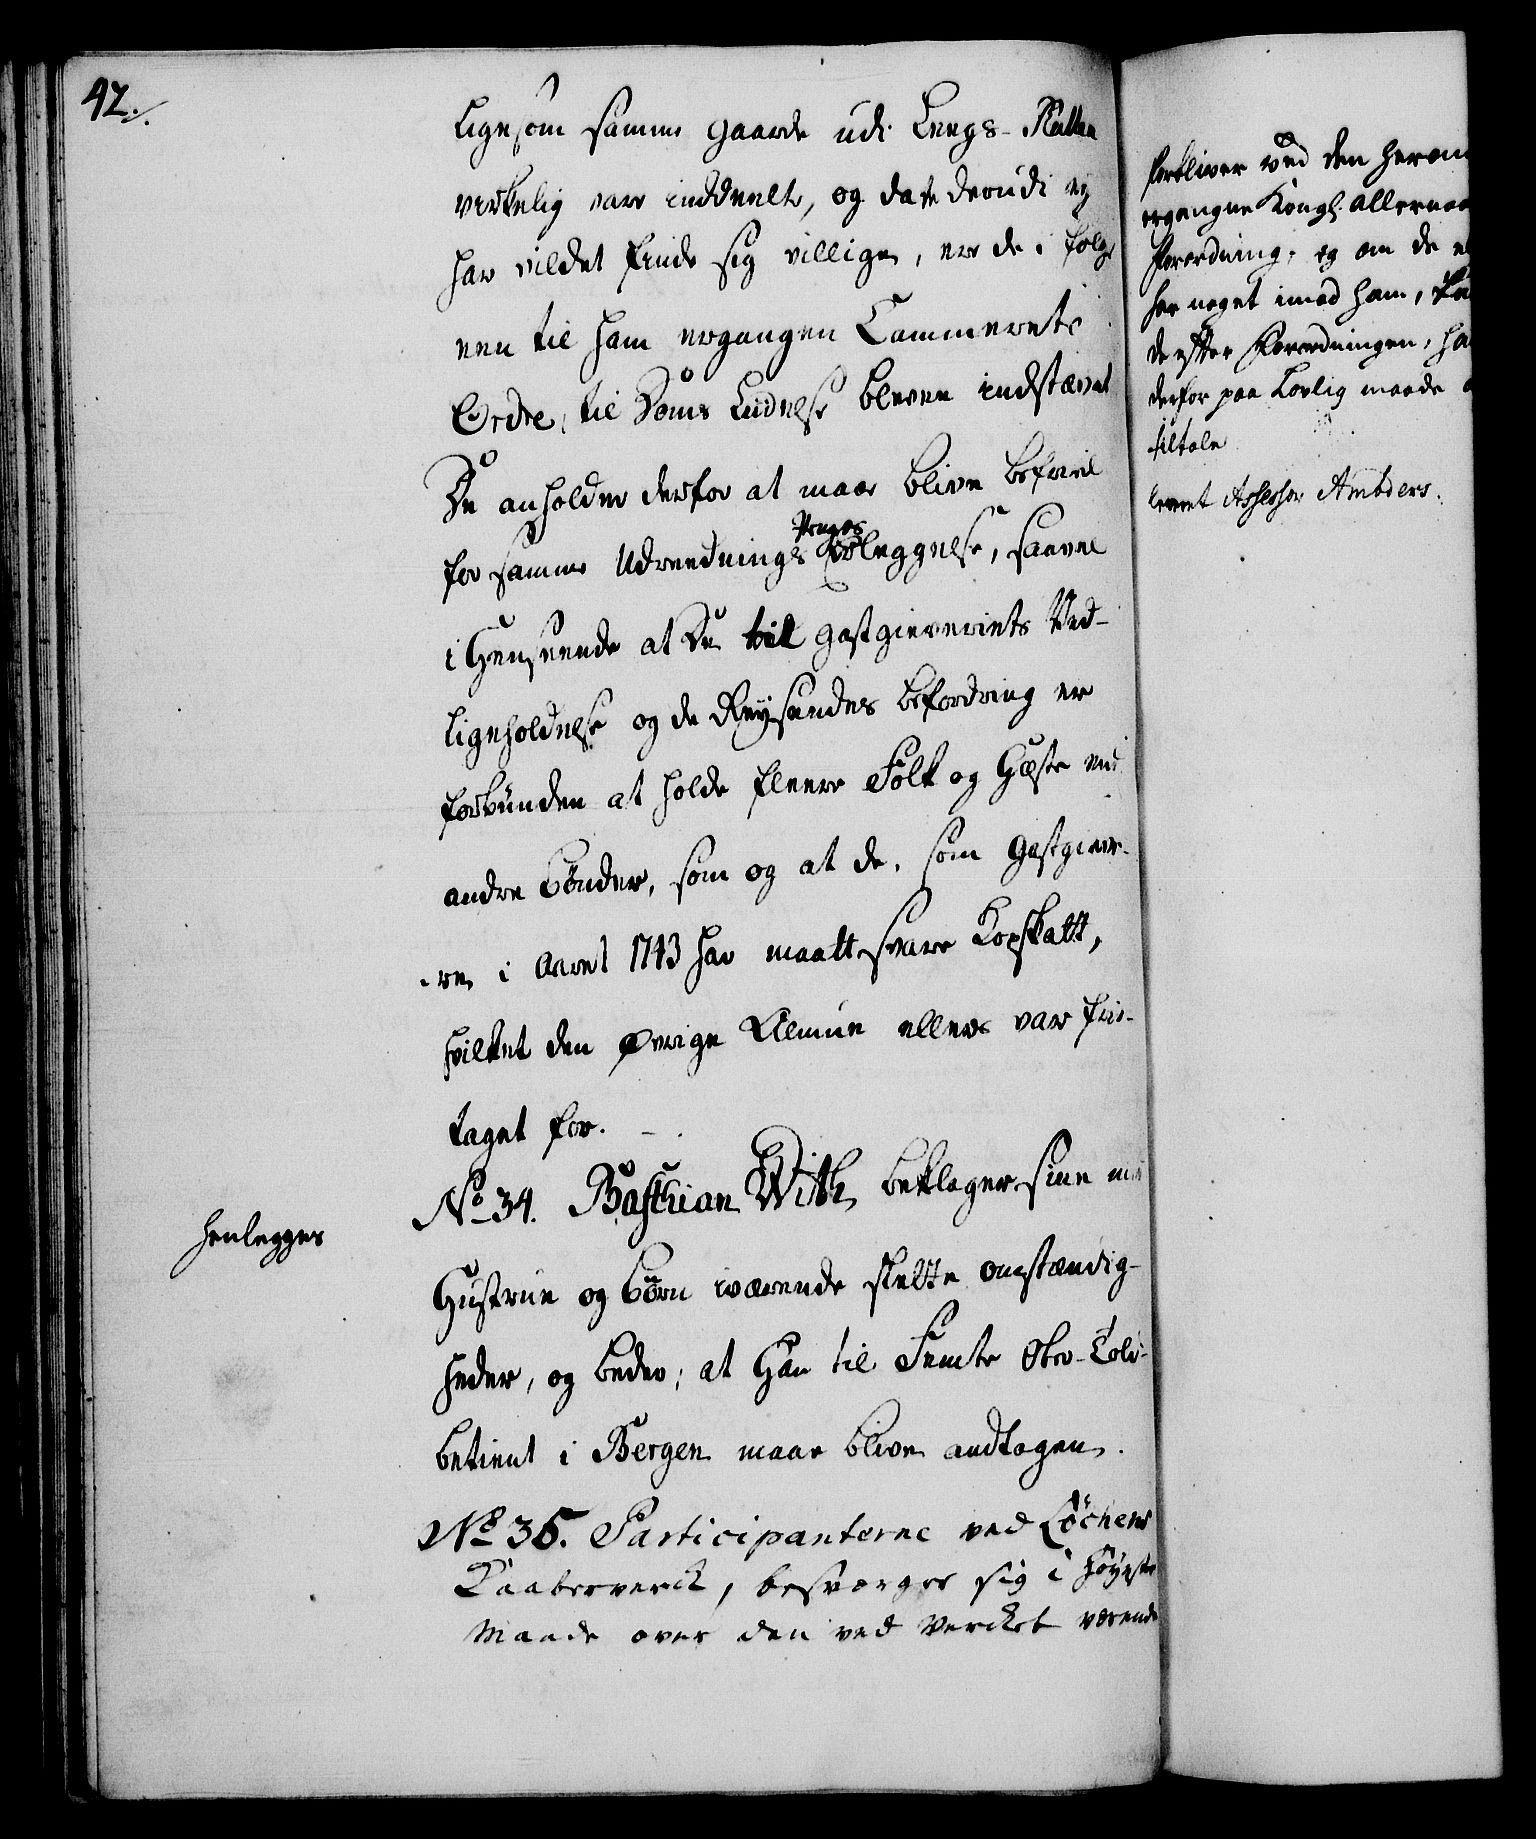 42.
ligesom samme gaarde udi Leegs-Rullen
virkelig vare inddeelte, og da de derudi ey
har vildet finde sig villige, ere de i følge
een til ham ergangen Cammerets
Ordre, til Doms Liidelse bleven indstævnt
De anholder derfor at maae blive befriet
for samme Udreednings Penges Erleggelse, saavel
i Henseende at De til gastgieveriets Ved-
ligeholdelse og de Reysendes befordring er
forbunden at holde fleere Folk og Hæste end
andre Bønder, som og at de, som Gastgieve-
re, i Aaret 1743 har maatt svare Kopskatt,
hvilket den øvrige Allmue ellers var frie-
taget for.
henlegges
No 34. Basthian With beklager sine med
Hustrue og Børn iværende slette omstændig-
heder, og beder, at Han til Femte Told-
betient i Bergen maae blive andtagen.
No 35. Participanterne ved Løchens
Kaaberverck, besverger sig i høyeste
Maade over den ved Vercket værende
forbliver ved den herom
ergangne Kongl. allernaa
forordning, og om de el
har noget imod ham,
de efter Forordningen, ha
derfor paa Lovlig maade
tiltale
leveret Assessor Ambders.